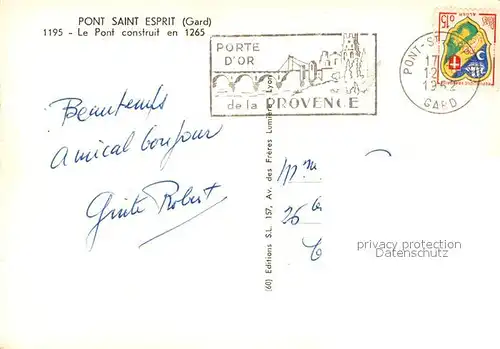 PONT SAINT ESPRIT (Gard)
1195 - Le Pont construit en 1265
PORTE
D'OR
de la PROVENCE
PONT-ST
17
12
1952
GARD
15f
Beautemps
Amical bonjour
Robert
(60) Editions S.L. 157, Av. des Frères Lumière, Lyon
26
privacy protection
Datenschutz